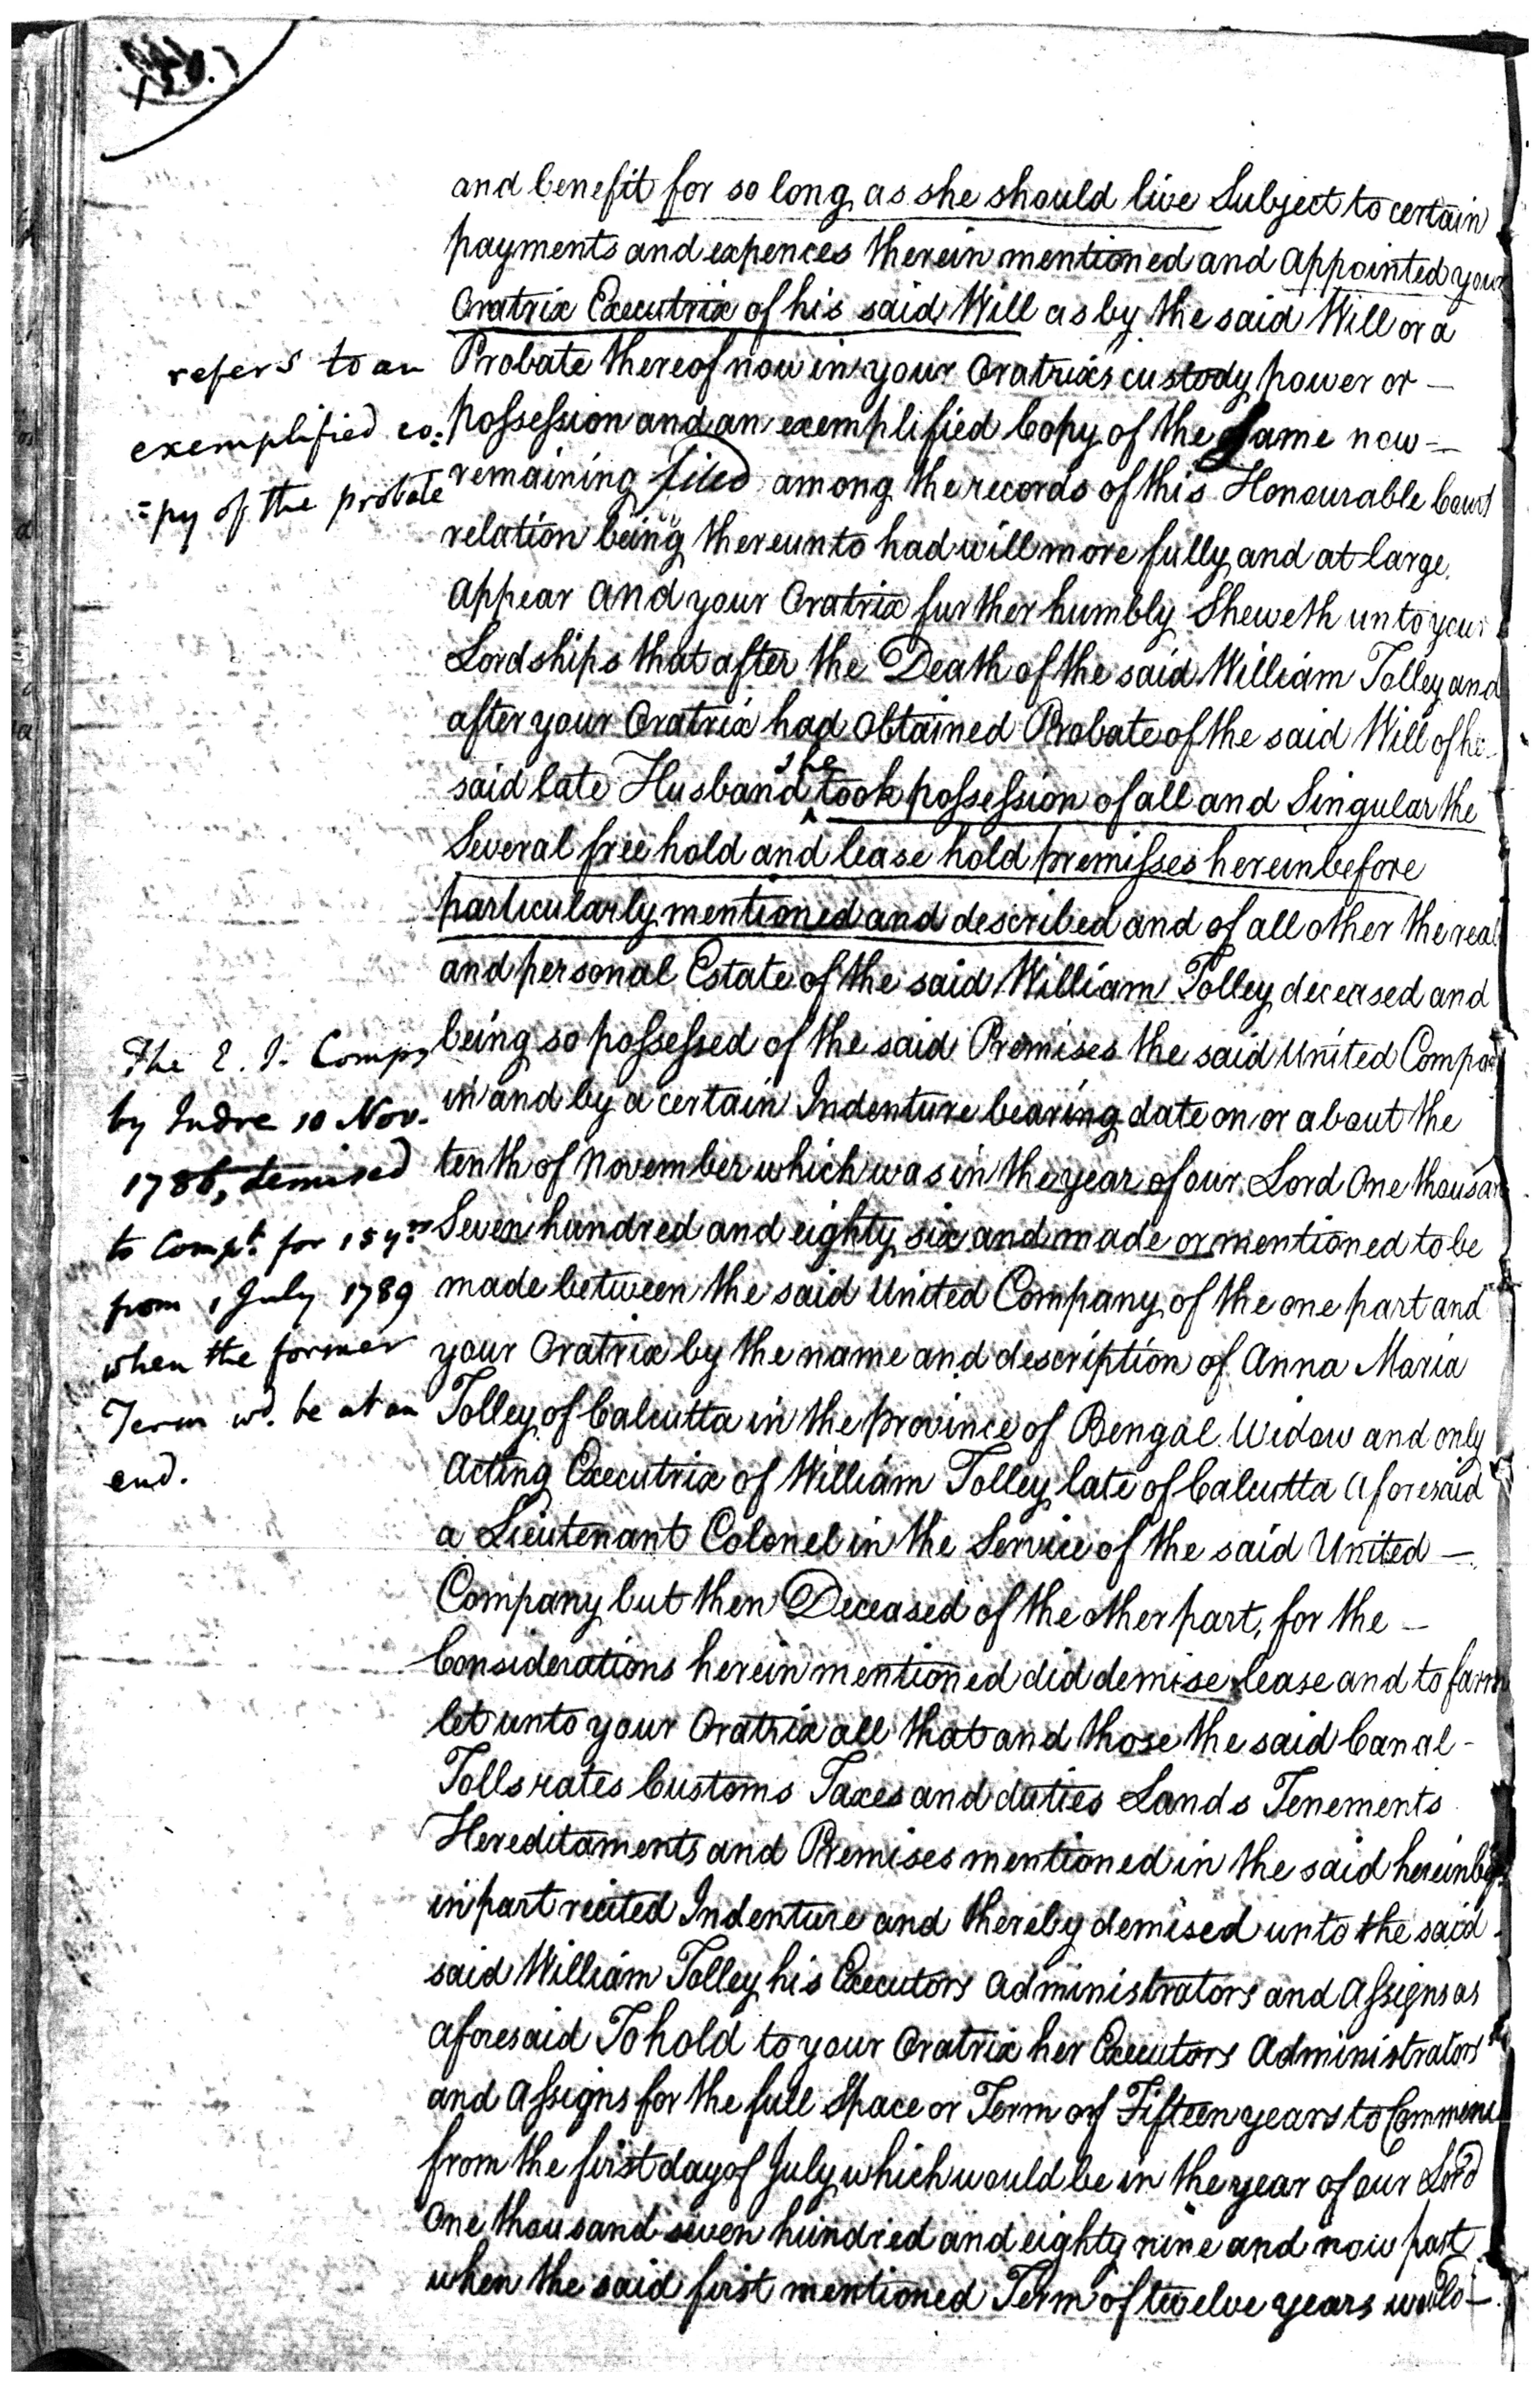 and benefit for so long as she should live Subject to certain
payments and expences therein mentioned and appointed your
Oratrix Executrix of his said Will as by the said Will or a
Probate thereof now in your Oratrixs custody power or —
possession and an exemplified Copy of the Same now —
remaining filed among the records of this Honourable Court
relation being thereunto had will more fully and at large
appear and your Oratrix further humbly Sheweth unto your
Lordships that after the Death of the said William Tolley and
after your Oratrix had obtained Probate of the said Will of he
she
said late Husband ^ took possession of all and Singular the
Several free hold and lease hold premisses hereinbefore
particularly mentioned and described and of all other the real
and personal Estate of the said William Tolley deceased and
being so possessed of the said Premises the said United Compa
in and by a certain Indenture bearing date on or about the
tenth of November which was in the year of our Lord One thousan
Seven hundred and eighty six and made or mentioned to be
made between the said United Company of the one part and
your Oratrix by the name and description of Anna Maria
Tolley of Calcutta in the province of Bengal Widow and only
acting Executrix of William Tolley late of Calcutta aforesaid
a Lieutenant Colonel in the Service of the said United —
Company but then Deceased of the other part, for the —
Considerations herein mentioned did demise lease and to farm
let unto your Oratrix all that and those the said Canal -
Tolls rates Customs Taxes and duties Lands Tenements
Hereditaments and Premises mentioned in the said hereinbef
in part recited Indenture and thereby demised unto the said
said William Tolley his Executors administrators and assigns as
aforesaid To hold to your Oratrix her Executors Administrators
and assigns for the full Space or Term of Fifteen years to Commence
from the first day of July which would be in the year of our Lord
One thousand seven hundred and eighty nine and now past
when the said first mentioned Term of twelve years would —
refers to an
exemplified co:
=py of the probate
The E. I. Compy
by Indre 10 Nov.
1786, demised
to Compt. for 15 yrs
from 1 July 1789
when the former
Term wd. be at an
end.